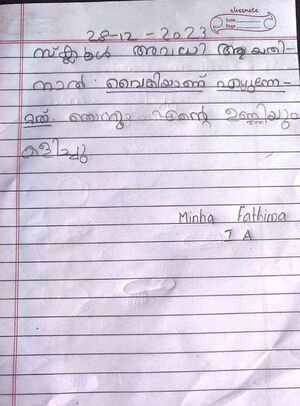 classmate
Date
Page
28-12-2023
സ്കൂൾ അവധി ആയതി-
നാൽ വൈകിയാണ് എഴുന്നേ-
റ്റത്. ഞാനും എന്റെ ഉണ്ണിയും
കളിച്ചു
Minha Fathima
I A